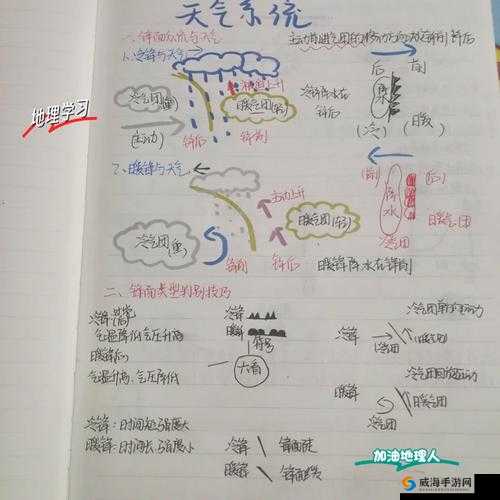 天气系统
一、锋面系统与天气
1、冷锋与天气
冷气团(重)
(主动)
被迫上升
暖气团(轻)
锋后 锋前
冷锋降水在
锋后
后 前
降水
(冷) (暖)
地理学习
2、暖锋与天气
冷气团(重)
主动上升
暖气团(轻)
锋前 锋后
暖锋降水在锋前
(前) (后)
降水
冷气团
暖气团
二、锋面类型判别技巧
冷锋
气温降低气压升高
暖锋
气温升高、气压降低
冷锋
暖锋
符号
六看
冷锋
冷气团
暖气团
暖锋
冷气团
暖气团
冷锋：时间短、强度大
暖锋：时间长、强度小
冷锋 锋面陡
暖锋 锋面缓
加油地理人
威海手游网